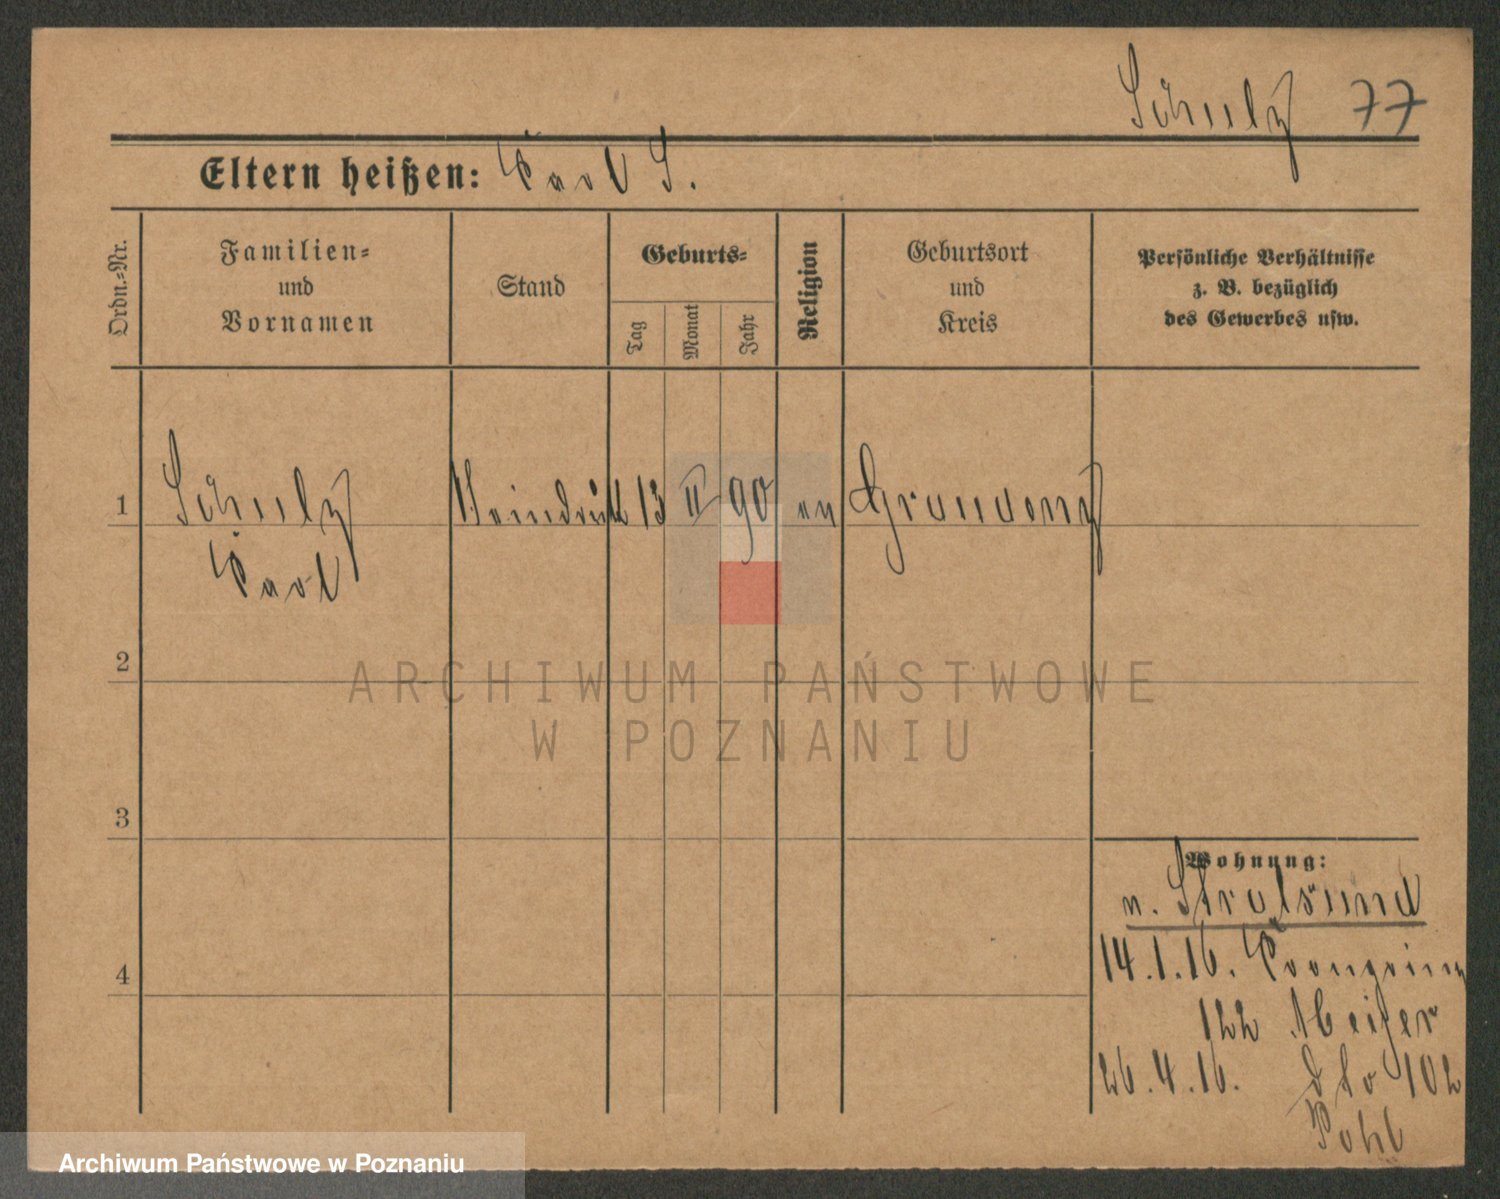 Schulz 77
Eltern heißen: Carl S.
Ordn.-Nr.
Familien-
und
Vornamen
Stand
Geburts-
Tag
Monat
Jahr
Religion
Geburtsort
und
Kreis
Persönliche Verhältnisse
z. B. bezüglich
des Gewerbes usw.
1 Schulz 13 II 90 ev
Carl
2
3
4
Wohnung:
n. Stralsund
14.1.16.
122 Meißer
26.4.16. dto 102
Pohl
ARCHIWUM PAŃSTWOWE
W POZNANIU
Archiwum Państwowe w Poznaniu